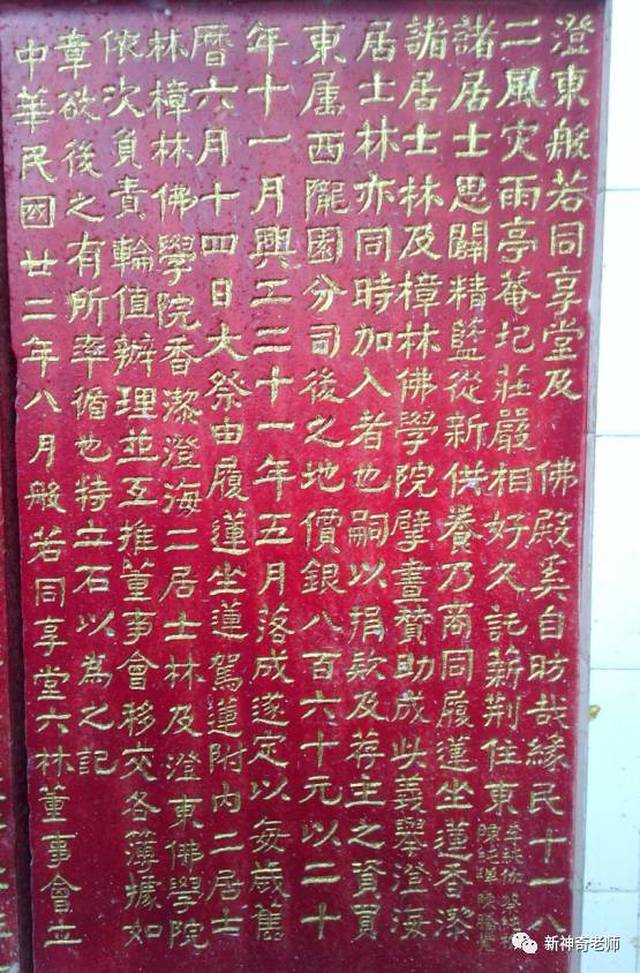 澄東般若同享堂及 佛殿奚自昉哉緣民十一八
二風灾雨亭菴圮莊嚴相好久託薪荆住東
諸居士思闢精藍從新供養乃商同履蓮坐蓮香潻
諸居士林及樟林佛學院擘畫贊助成此義舉澄海
居士林亦同時加入者也嗣以捐款及荐主之資買
東属西隴園分司後之地價銀八百六十元以二十
年十一月興工二十一年五月落成遂定以每歲舊
曆六月十四日大祭由履蓮坐蓮駕蓮附内二居士
林樟林佛學院香潻澄海二居士林及澄東佛學院
依次負責輪值辦理並互推董事會移交各簿據如
章欲後之有所率循也特立石以為之記
中華民國廿二年八月般若同享堂六林董事會立
新神奇老师